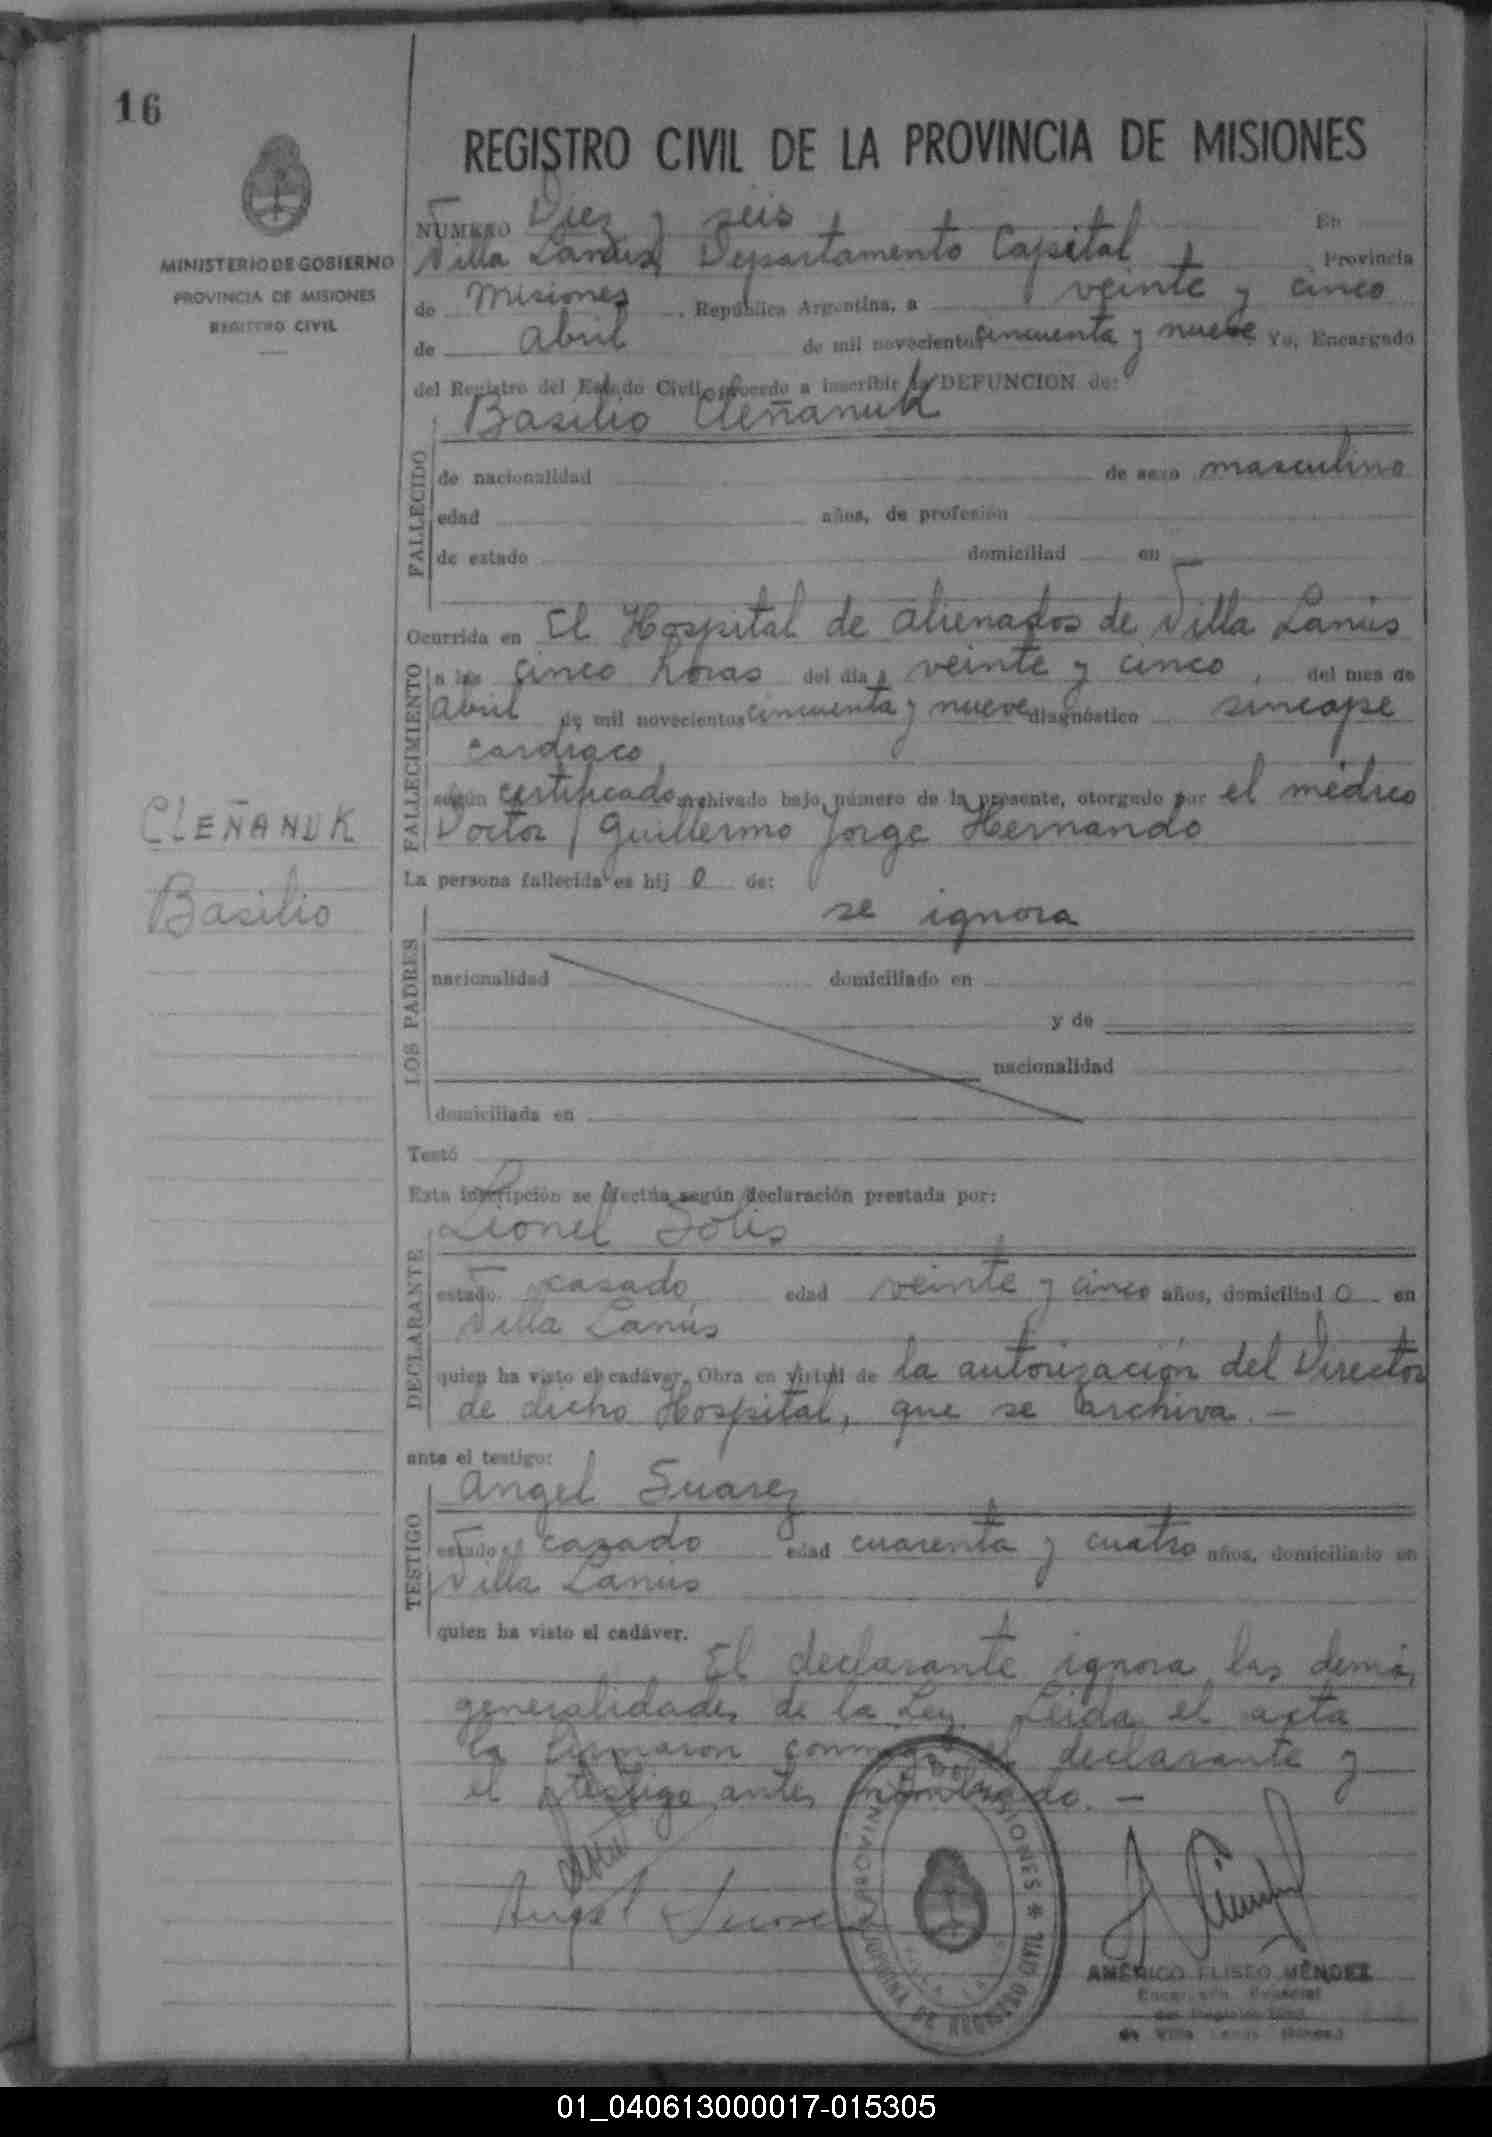 16
REGISTRO CIVIL DE LA PROVINCIA DE MISIONES
MINISTERIO DE GOBIERNO
PROVINCIA DE MISIONES
REGISTRO CIVIL
NUMERO Diez y seis En
Villa Lanús, Departamento Capital, Provincia
de Misiones, República Argentina, a veinte y cinco
de Abril de mil novecientos cincuenta y nueve Yo, Encargado
del Registro del Estado Civil, procedo a inscribir la DEFUNCION de:
Basilio Cleñanuk
FALLECIDO
de nacionalidad de sexo masculino
edad años, de profesión
de estado domiciliad en
Ocurrida en El Hospital de alienados de Villa Lanús
FALLECIMIENTO
a las cinco horas del día veinte y cinco, del mes de
Abril de mil novecientos cincuenta y nueve diagnóstico sincope
cardiaco
según certificado archivado bajo número de la presente, otorgado por el médico
Doctor Guillermo Jorge Hernando
CLEÑANUK
Basilio
La persona fallecida es hij o de:
se ignora
LOS PADRES
nacionalidad domiciliado en
y de
nacionalidad
domiciliada en
Testó
Esta inscripción se efectúa según declaración prestada por:
Lionel Solis
DECLARANTE
estado casado edad veinte y cinco años, domiciliad o en
Villa Lanús
quien ha visto el cadáver. Obra en virtud de la autorización del Director
de dicho Hospital, que se archiva. —
ante el testigo:
Angel Suarez
TESTIGO
estado casado edad cuarenta y cuatro años, domiciliado en
Villa Lanús
quien ha visto el cadáver.
El declarante ignora las demás
generalidades de la Ley. Leida el acta
la firmaron conmigo el declarante y
el testigo antes nombrado. —
Angel Suarez
PROVINCIA DE MISIONES * OFICINA DE REGISTRO CIVIL
AMÉRICO ELISEO MÉNDEZ
del Registro Civil
de Villa Lanús (Mnes.)
01_040613000017-015305